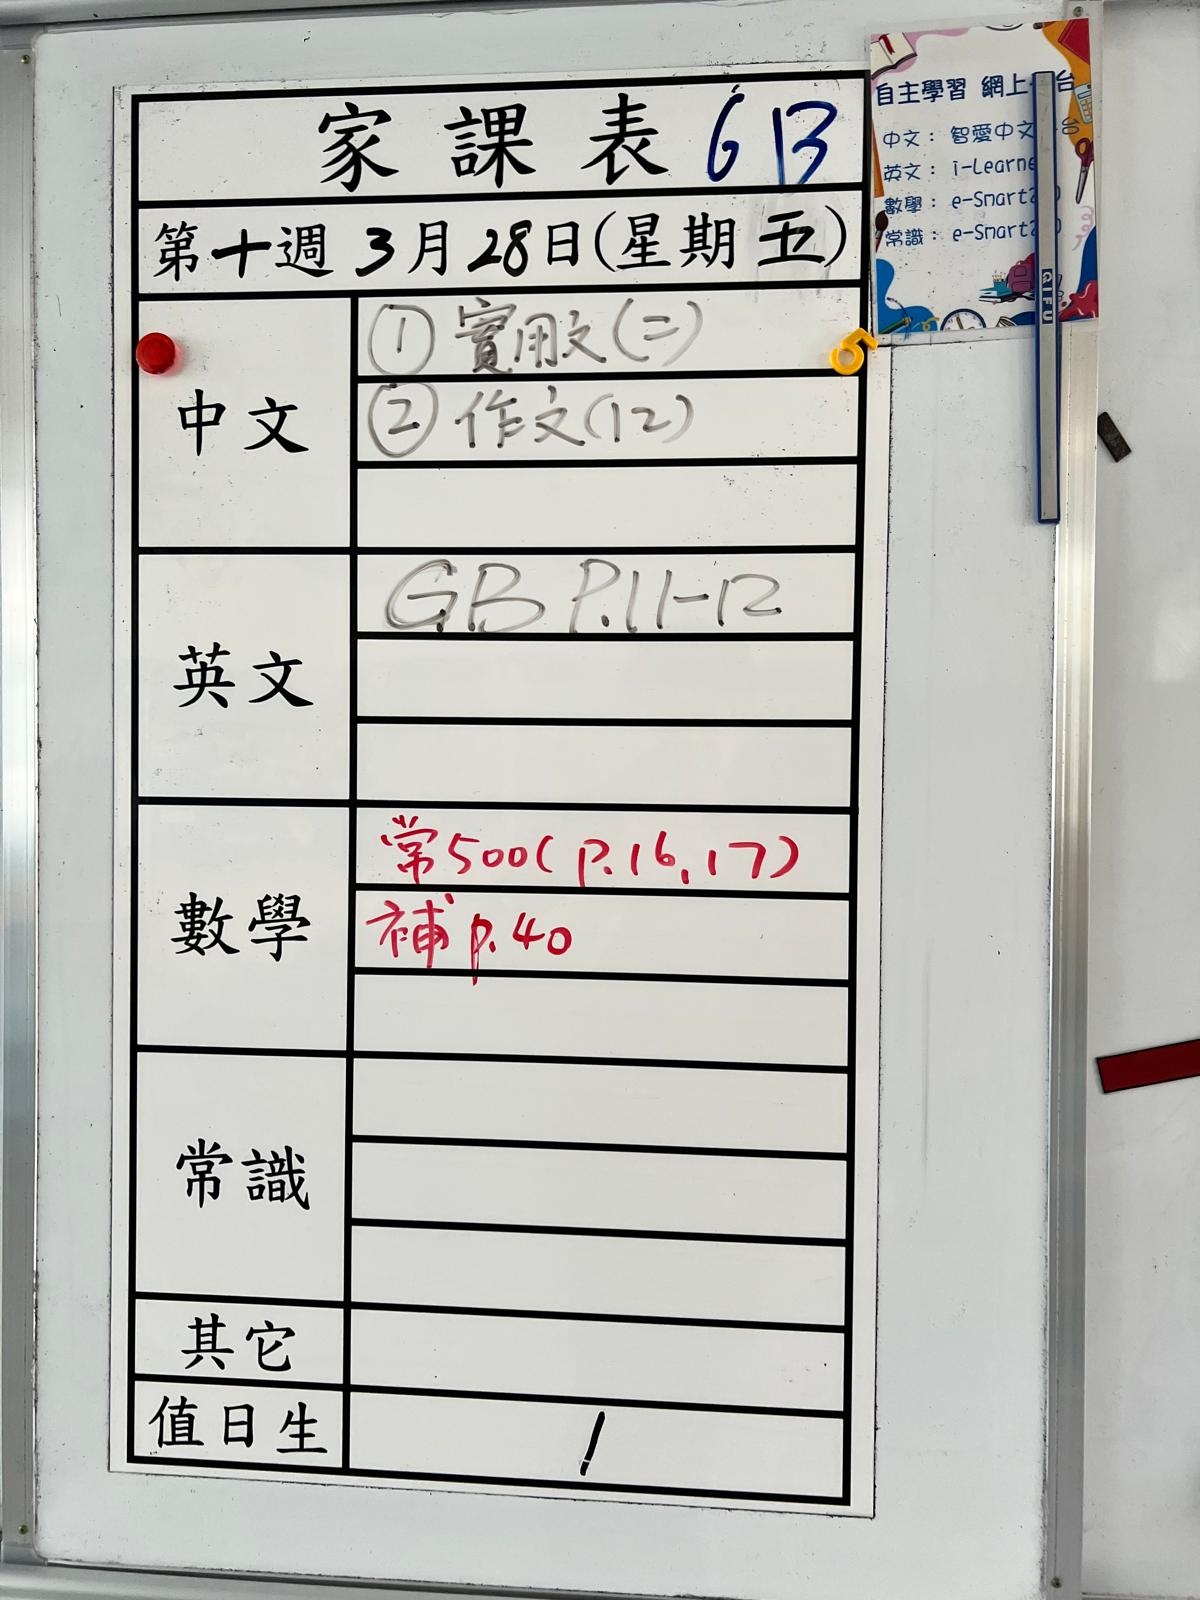 家課表 6B
第十週 3月28日(星期五)
中文
① 實用文(二)
② 作文(12)
英文
GB P.11-12
數學
常500(p.16,17)
補 p.40
常識
其它
值日生
1
自主學習 網上
中文： 智愛中文
英文： i-Learne
數學： e-Smart
常識： e-Smart
QIFU